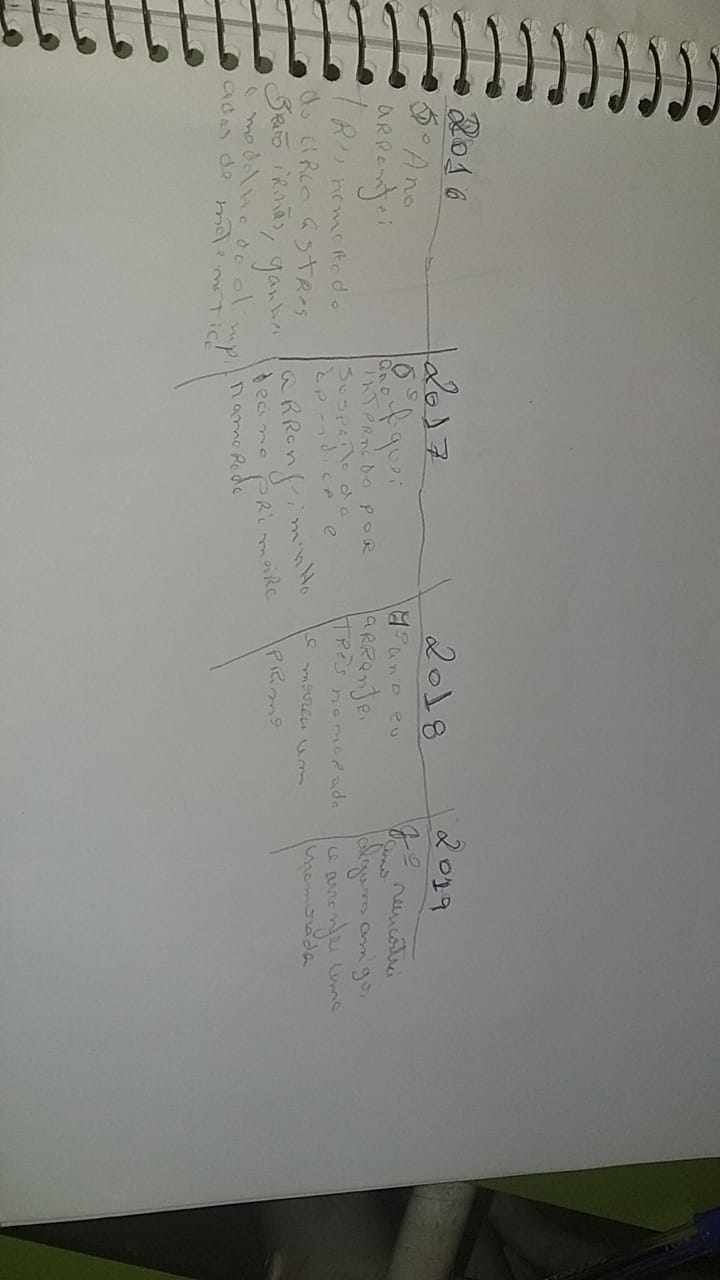 2016
5º Ano
arranjei
TRês namorado
do CIRCO ASTRES
São irmãs, ganhei
a medalha da olimpi
adas de matematica
2017
6º
ano fiquei
internado por
suspeita da
apendice e
aRRanjei minha
decima primeira
namorada
2018
7º ano eu
aRRanjei
TRês namorado
e morreu um
primo
2019
8º
ano reencontrei
alguns amigos
e arranjei uma
namorada